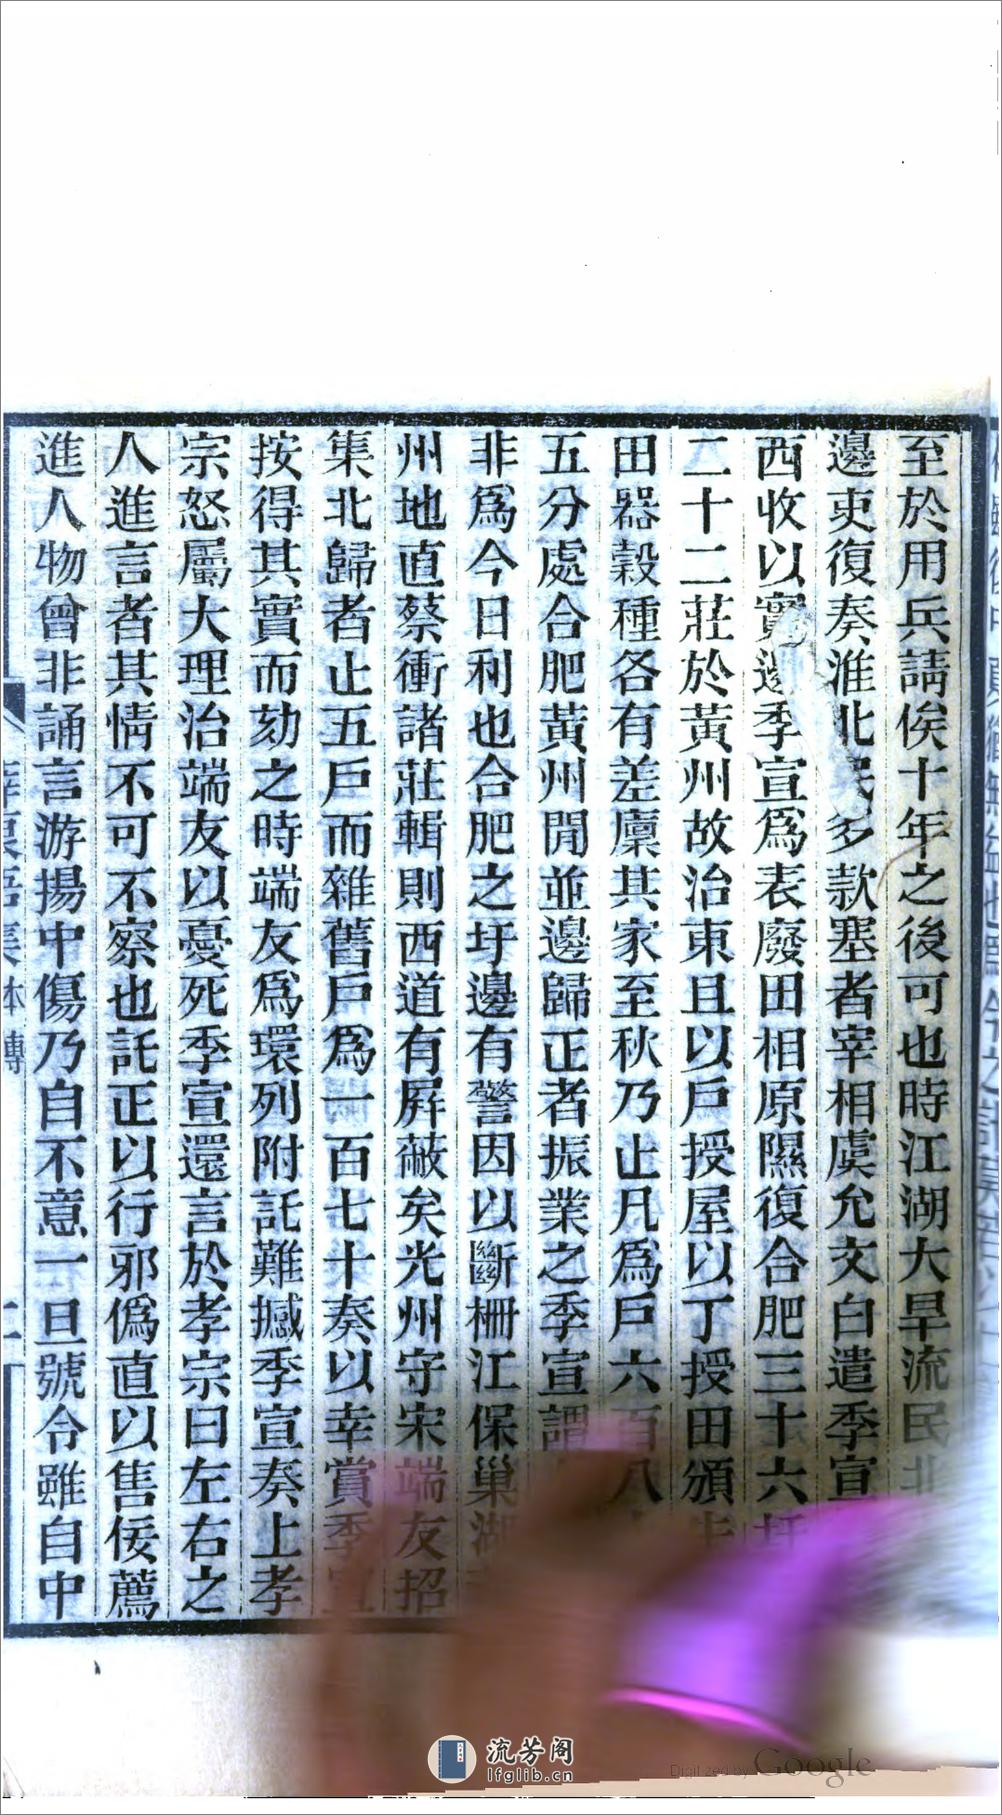 至於用兵請俟十年之後可也時江湖大旱流民北
邊吏復奏淮北民多款塞者宰相虞允文白遣季宣
西收以實邊季宣爲表廢田相原隰復合肥三十六圩
二十二莊於黃州故治東且以戶授屋以丁授田頒牛
田器穀種各有差廩其家至秋乃止凡爲戶六百八
五分處合肥黃州閒並邊歸正者振業之季宣謂
非爲今日利也合肥之圩邊有警因以斷柵江保巢湖
州地直蔡衝諸莊輯則西道有屛蔽矣光州守宋端友招
集北歸者止五戶而雜舊戶爲一百七十奏以幸賞季宣
按得其實而劾之時端友爲環列附託難撼季宣奏上孝
宗怒屬大理治端友以憂死季宣還言於孝宗曰左右之
人進言者其情不可不察也託正以行邪僞直以售佞薦
進人物曾非誦言游揚中傷乃自不意一旦號令雖自中
流芳阁
lfglib.cn
Digitized by Google